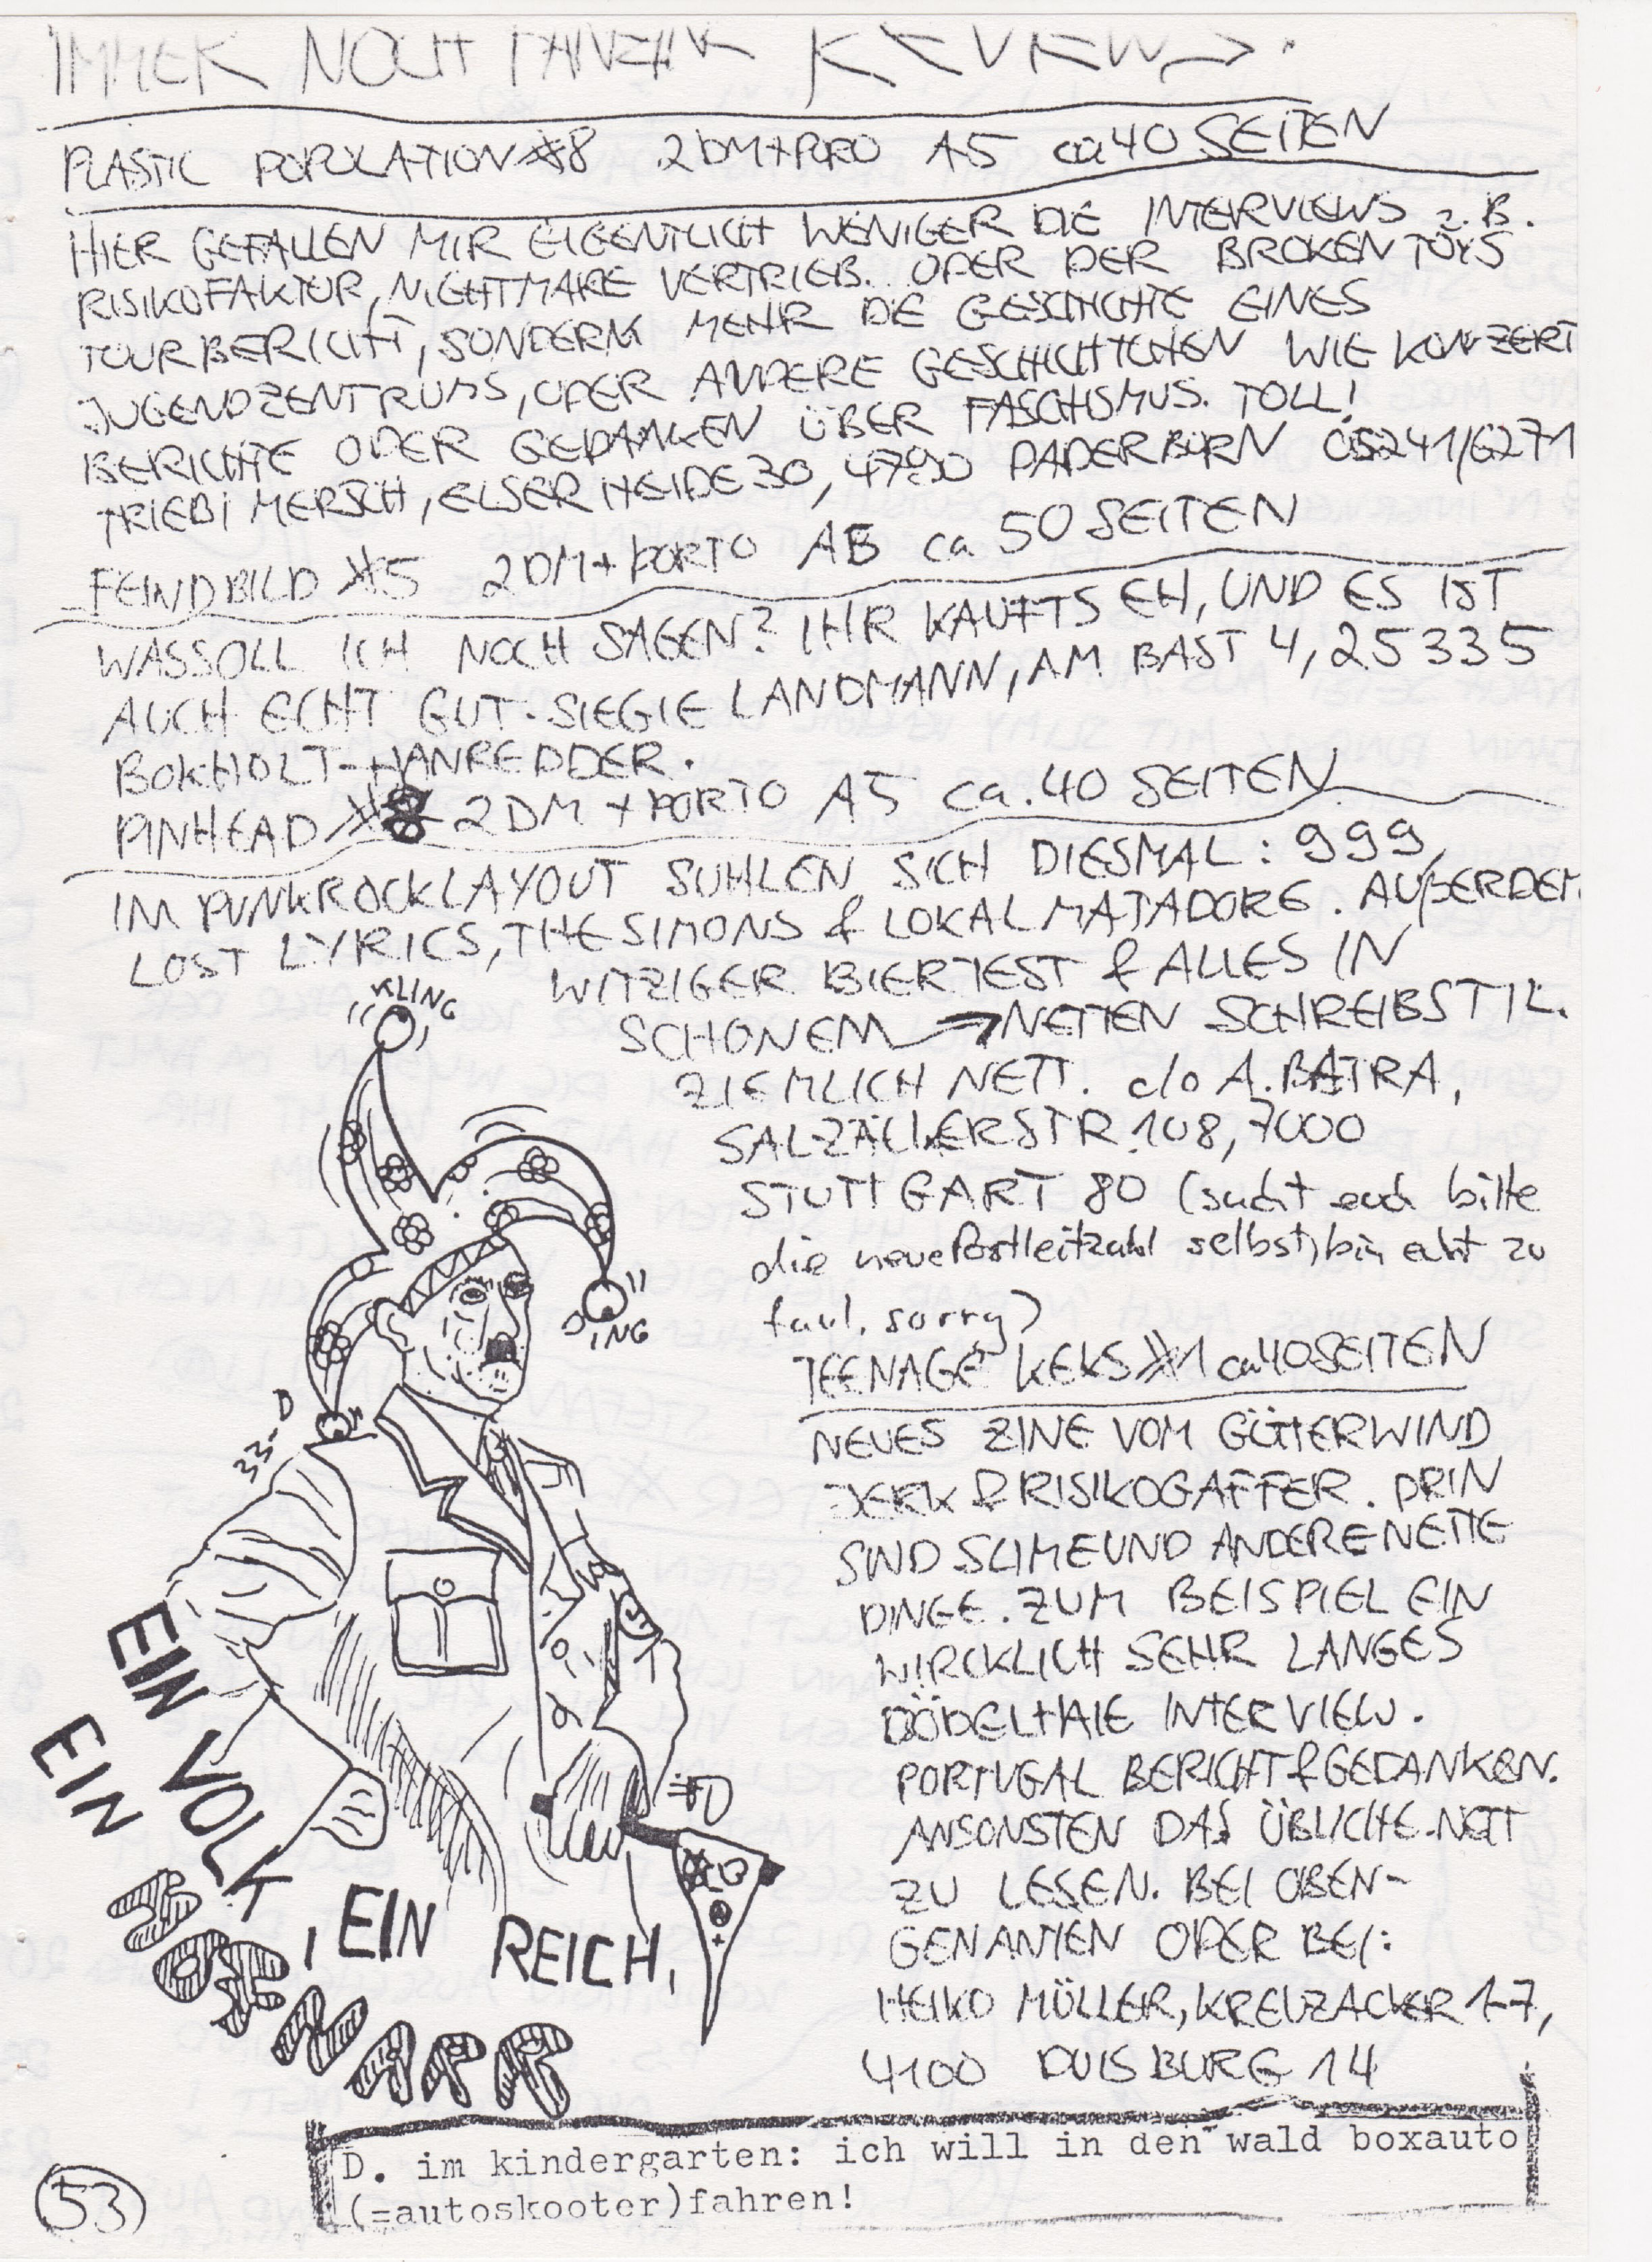 IMMER NOCH FANZINE REVIEWS.
PLASTIC POPULATION #8 2DM+PORO A5 ca 40 SEITEN
HIER GEFALLEN MIR EIGENTLICH WENIGER DIE INTERVIEWS z.B.
RISIKOFAKTOR, NIGHTMARE VERTRIEB.. ODER DER BROKEN TOYS
TOURBERICHT, SONDERN MEHR DIE GESCHICHTE EINES
JUGENDZENTRUMS, ODER ANDERE GESCHICHTCHEN WIE KONZERT
BERICHTE ODER GEDANKEN ÜBER FASCHISMUS. TOLL!
TRIEBI MERSCH, ELSER HEIDE 30, 4790 PADERBORN 05241/6271
FEINDBILD #5 2DM+PORTO A5 ca 50 SEITEN
WASSOLL ICH NOCH SAGEN? IHR KAUFTS EH, UND ES IST
AUCH ECHT GUT. SIEGIE LANDMANN, AM BAST 4, 25335
BOKHOLT-HANREDDER.
PINHEAD #8 2DM + PORTO A5 ca. 40 SEITEN
IM PUNKROCKLAYOUT SUHLEN SICH DIESMAL: 999,
LOST LYRICS, THE SIMONS & LOKALMATADORE. AUßERDEM
WITZIGER BIERTEST & ALLES IN
SCHÖNEM → NETTEN SCHREIBSTIL.
ZIEMLICH NETT. c/o A. BATRA,
STR. 108, 7000
STUTTGART 80 (sucht euch bitte
die neue Postleitzahl selbst, bin echt zu
faul, sorry)
TEENAGE KEKS #1 ca 40 SEITEN
NEUES ZINE VOM GÖTTERWIND
JERK & RISIKOGAFFER. DRIN
SIND SLIME UND ANDERE NETTE
DINGE. ZUM BEISPIEL EIN
WIRCKLICH SEHR LANGES
DÖDELHAIE INTERVIEW.
PORTUGAL BERICHT & GEDANKEN.
ANSONSTEN DAS ÜBLICHE. NETT
ZU LESEN. BEI OBEN-
GENANTEN ODER BEI:
HEIKO MÜLLER, KREUZACKER 17,
4100 DUISBURG 14
KLING
DING
EIN VOLK, EIN REICH,
EIN HOFNARR
D. im kindergarten: ich will in den wald boxauto
(=autoskooter)fahren!
53